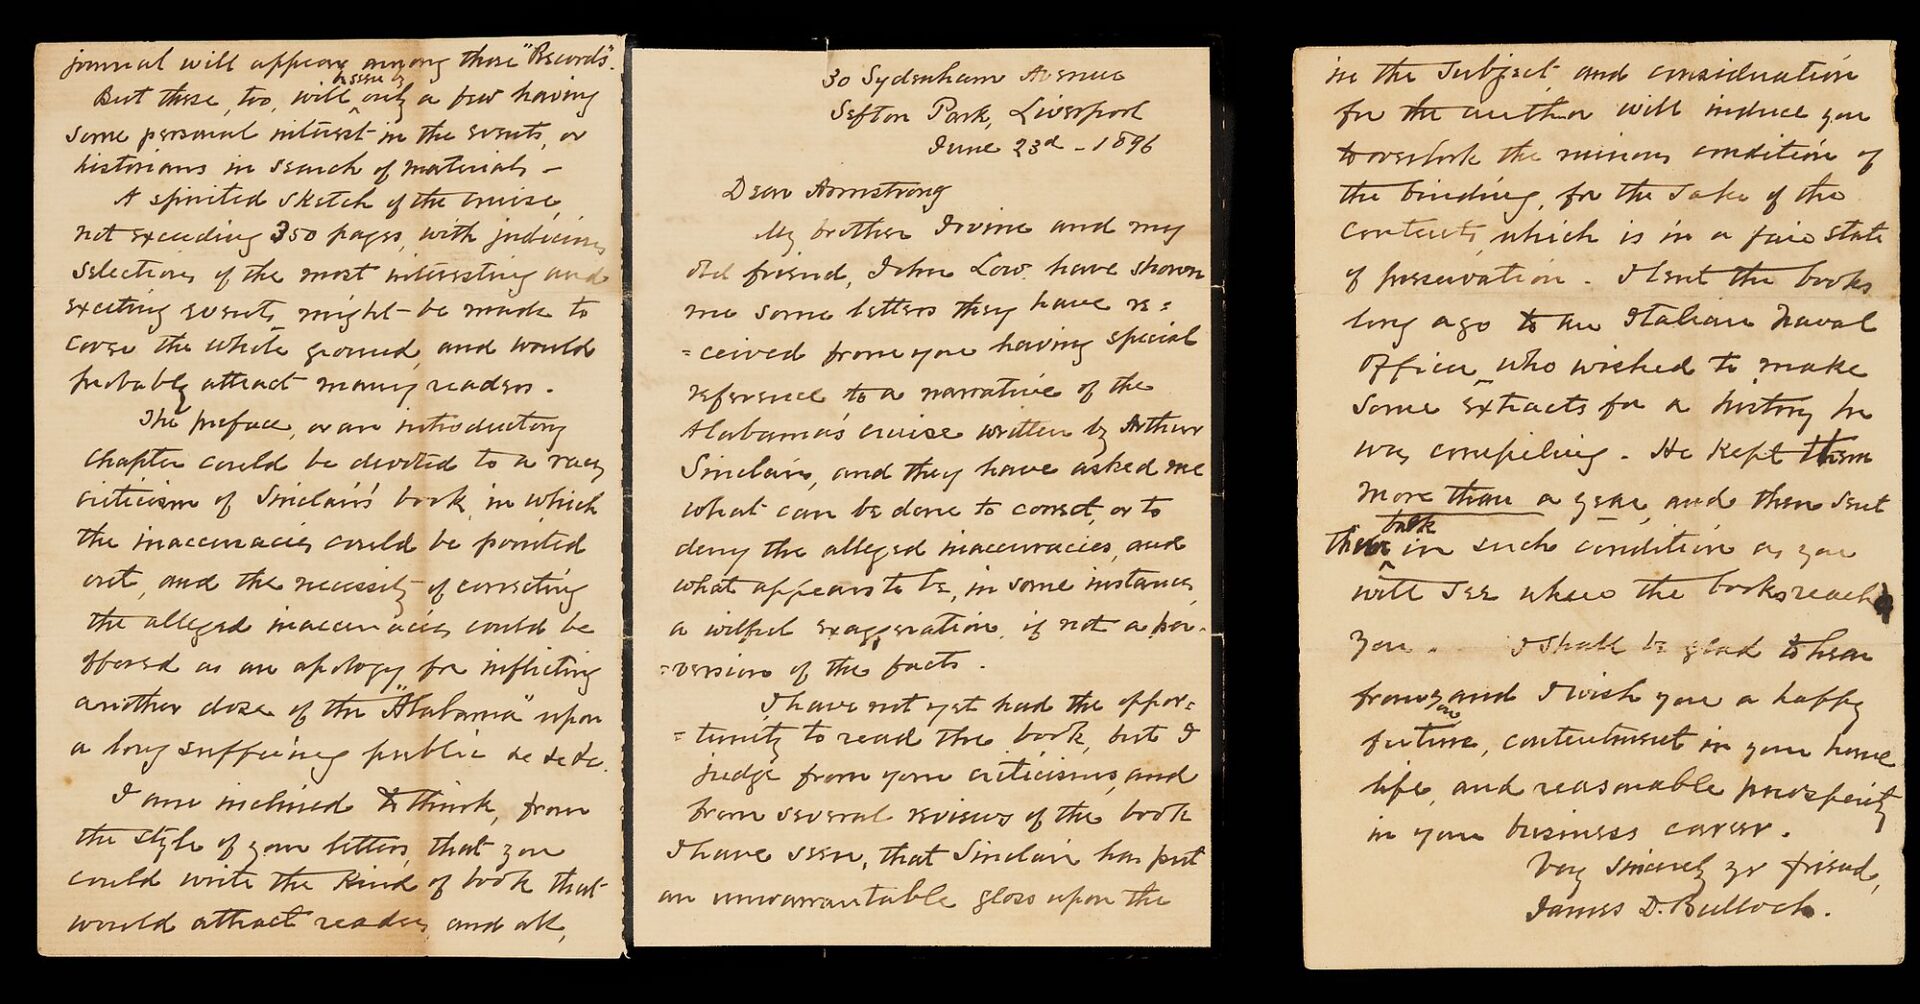 journal will appear among those "Records".
But these, too, will be seen by only a few having
some personal interest in the events, or
historians in search of materials –
A spirited sketch of the cruise,
not exceeding 350 pages, with judicious
selections of the most interesting and
exciting events might be made to
cover the whole ground, and would
probably attract many readers.
The preface, or an introductory
chapter could be devoted to a racy
criticism of Sinclair's book, in which
the inaccuracies could be pointed
out, and the necessity of correcting
the alleged inaccuracies could be
offered as an apology for inflicting
another dose of the "Alabama" upon
a long suffering public &c &c &c.
I am inclined to think, from
the style of your letters, that you
could write the kind of book that
would attract readers, and at,
30 Sydenham Avenue
Sefton Park, Liverpool
June 23d – 1896
Dear Armstrong
My brother Irvine and my
old friend, John Low have shown
me some letters they have re=
=ceived from you having special
reference to a narrative of the
Alabama's cruise written by Arthur
Sinclair, and they have asked me
what can be done to correct, or to
deny the alleged inaccuracies, and
what appears to be, in some instances,
a wilful exaggeration, if not a per-
=version of the facts.
I have not yet had the oppor=
=tunity to read the book, but I
judge from your criticisms, and
from several reviews of the book
I have seen, that Sinclair has put
an unwarrantable gloss upon the
in the subject, and consideration
for the author will induce you
to overlook the ruinous condition of
the binding, for the sake of the
contents, which is in a fair state
of preservation. I lent the books
long ago to an Italian Naval
Officer, who wished to make
some extracts for a history he
was compiling. He kept them
more than a year, and then sent
them back in such condition as you
will see when the books reach
you. I shall be glad to hear
from you and I wish you a happy
future, contentment in your home
life, and reasonable prosperity
in your business career.
Very sincerely yr friend,
James D. Bulloch.